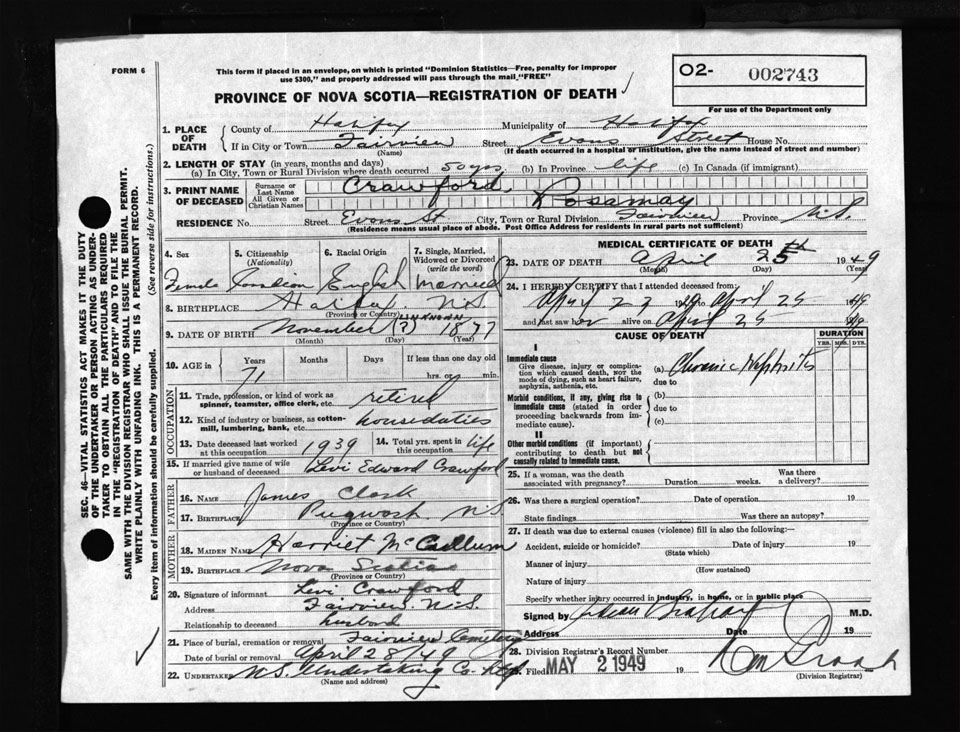 FORM 6
This form if placed in an envelope, on which is printed "Dominion Statistics—Free, penalty for improper
use $300," and properly addressed will pass through the mail "FREE"
O2- 002743
For use of the Department only
PROVINCE OF NOVA SCOTIA—REGISTRATION OF DEATH
1. PLACE OF DEATH
County of Halifax Municipality of Halifax
If in City or Town Fairview Street Evans Street House No.
(Name) (If death occurred in a hospital or institution, give the name instead of street and number)
2. LENGTH OF STAY (in years, months and days)
(a) In City, Town or Rural Division where death occurred 50 yrs (b) In Province life (c) In Canada (if immigrant)
3. PRINT NAME OF DECEASED
Surname or Last Name Crawford
All Given or Christian Names Rosamay
RESIDENCE No. Street Evans St City, Town or Rural Division Fairview Province N.S.
(Residence means usual place of abode. Post Office Address for residents in rural parts not sufficient)
4. Sex 5. Citizenship (Nationality) 6. Racial Origin 7. Single, Married, Widowed or Divorced (write the word)
Female Canadian English Married
8. BIRTHPLACE Halifax N.S
(Province or Country)
9. DATE OF BIRTH November (?) UNKNOWN 1877
(Month) (Day) (Year)
10. AGE in Years Months Days If less than one day old
71 hrs. or min.
OCCUPATION
11. Trade, profession, or kind of work as spinner, teamster, office clerk, etc. retired
12. Kind of industry or business, as cotton-mill, lumbering, bank, etc. housedaties
13. Date deceased last worked at this occupation 1939 14. Total yrs. spent in this occupation life
15. If married give name of wife or husband of deceased Levi Edward Crawford
FATHER
16. NAME James Clark
17. BIRTHPLACE Pugwash N.S
(Province or Country)
MOTHER
18. MAIDEN NAME Harriet McCallum
19. BIRTHPLACE Nova Scotia
(Province or Country)
20. Signature of informant Levi Crawford
Address Fairview N.S.
Relationship to deceased husband
21. Place of burial, cremation or removal Fairview Cemetery
Date of burial or removal April 28/49
22. UNDERTAKER N.S. Undertaking Co.
(Name and address)
MEDICAL CERTIFICATE OF DEATH
23. DATE OF DEATH April 25th 1949
(Month) (Day) (Year)
24. I HEREBY CERTIFY that I attended deceased from:
April 23 1949 to April 25 1949
and last saw her alive on April 25 1949
CAUSE OF DEATH
DURATION
YRS. MOS. DYS.
I
Immediate cause
Give disease, injury or complication which caused death, not the mode of dying, such as heart failure, asphyxia, asthenia, etc.
(a) Chronic Nephritis
due to
Morbid conditions, if any, giving rise to immediate cause (stated in order proceeding backwards from immediate cause).
(b)
due to
(c)
II
Other morbid conditions (if important) contributing to death but not causally related to immediate cause.
25. If a woman, was the death associated with pregnancy? Duration weeks. Was there a delivery?
26. Was there a surgical operation? Date of operation 19
State findings Was there an autopsy?
27. If death was due to external causes (violence) fill in also the following:—
Accident, suicide or homicide? Date of injury 19
(State which)
Manner of injury
(How sustained)
Nature of injury
Specify whether injury occurred in industry, in home, or in public place
Signed by M.D.
Address Date 19
28. Division Registrar's Record Number
29. Filed MAY 2 1949 19
(Division Registrar)
SEC. 46—VITAL STATISTICS ACT MAKES IT THE DUTY
OF THE UNDERTAKER OR PERSON ACTING AS UNDER-
TAKER TO OBTAIN ALL THE PARTICULARS REQUIRED
IN THE "REGISTRATION OF DEATH" AND TO FILE THE
SAME WITH THE DIVISION REGISTRAR WHO SHALL ISSUE THE BURIAL PERMIT.
WRITE PLAINLY WITH UNFADING INK. THIS IS A PERMANENT RECORD.
Every item of information should be carefully supplied. (See reverse side for instructions.)